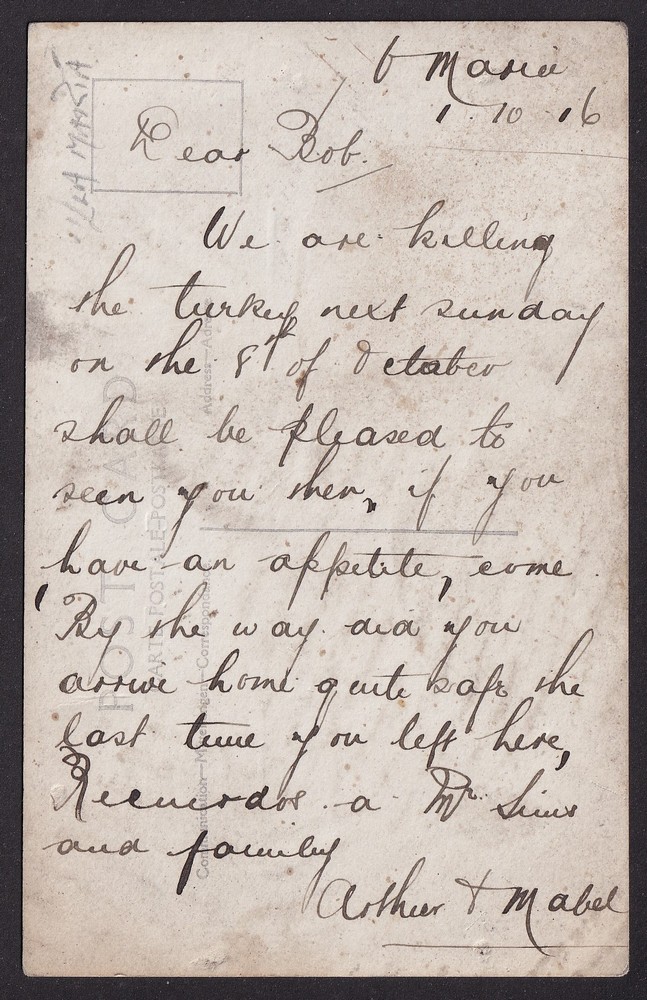 V Maria
1. 10. 16
Dear Bob.
We are killing
the turkey next sunday
on the 8th of October
shall be pleased to
seen you then, if you
have an appetite, come
By the way did you
arrive home quite safe the
last time you left here,
Recuerdos a Mr Sims
and family
Arthur & Mabel
VILLA MARIA
POST CARD
CARTE POSTALE
Address
Communication
Correspondance